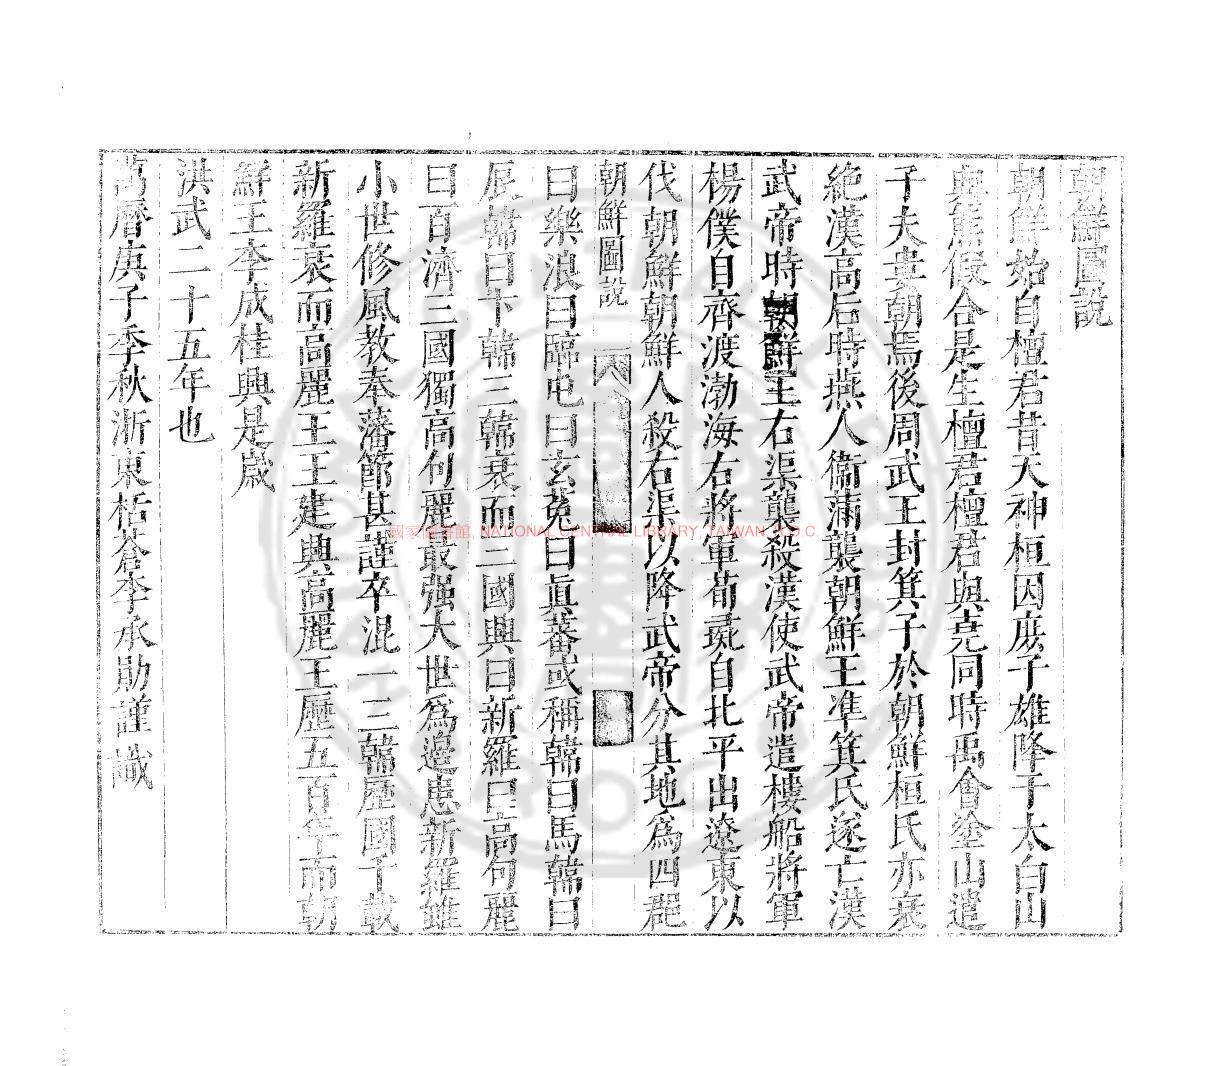 朝鮮圖說
朝鮮始自檀君昔天神桓因庶子雄降于太白山
與熊假合是生檀君檀君與堯同時禹會塗山遣
子夫婁朝焉後周武王封箕子於朝鮮桓氏亦衰
絶漢高后時燕人衞滿襲朝鮮王準箕氏遂亡漢
武帝時朝鮮王右渠襲殺漢使武帝遣樓船將軍
楊僕自齊渡渤海右將軍荀彘自北平出遼東以
伐朝鮮朝鮮人殺右渠以降武帝分其地爲四郡
朝鮮圖說
曰樂浪曰臨屯曰玄菟曰眞蕃或稱韓曰馬韓曰
辰韓曰卞韓三韓衰而三國興曰新羅曰高句麗
曰百濟三國獨高句麗最强大世爲邊患新羅雖
小世修風教奉藩節甚謹卒混一三韓歷國千載
新羅衰而高麗王王建興高麗王歷五百年而朝
鮮王李成桂興是歲
洪武二十五年也
萬曆庚子季秋浙東栝蒼李承勛謹識
國家圖書館, NATIONAL CENTRAL LIBRARY, TAIWAN, R.O.C.